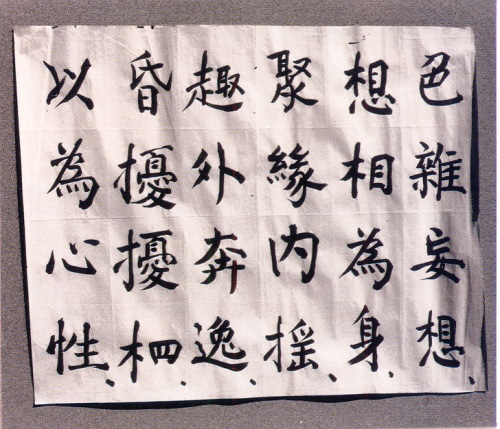 色雜妄想、
想相為身、
聚緣内摇、
趣外奔逸、
昏擾擾相、
以為心性、